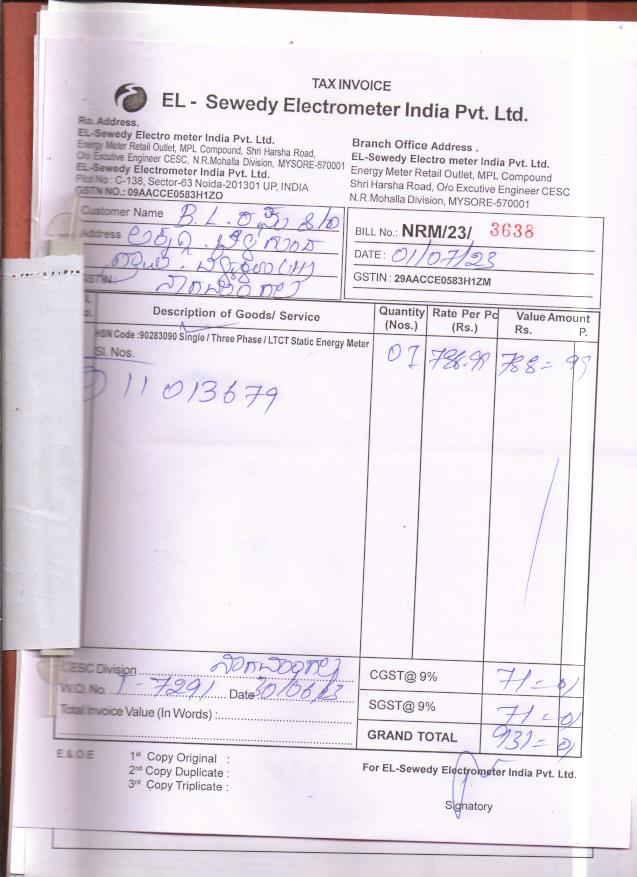 TAX INVOICE
EL - Sewedy Electrometer India Pvt. Ltd.
Ro. Address.
EL-Sewedy Electro meter India Pvt. Ltd.
Energy Meter Retail Outlet, MPL Compound, Shri Harsha Road,
O/o Excutive Engineer CESC, N.R.Mohalla Division, MYSORE-570001
EL-Sewedy Electrometer India Pvt. Ltd.
Plot No : C-138, Sector-63 Noida-201301 UP, INDIA
GSTN NO.: 09AACCE0583H1ZO
Branch Office Address .
EL-Sewedy Electro meter India Pvt. Ltd.
Energy Meter Retail Outlet, MPL Compound
Shri Harsha Road, O/o Excutive Engineer CESC
N.R.Mohalla Division, MYSORE-570001
Customer Name B. L.
Address
GSTIN :
BILL No.: NRM/23/ 3638
DATE : 01/07/23
GSTIN : 29AACCE0583H1ZM
Description of Goods/ Service Quantity (Nos.) Rate Per Pc (Rs.) Value Amount Rs. P.
HSN Code :90283090 Single / Three Phase / LTCT Static Energy Meter
Sl. Nos. 01
11013679
CESC Division
W.O. No. 7291 Date 30/06/23
Total Invoice Value (In Words) :
CGST@ 9% 71=01
SGST@ 9% 71=01
GRAND TOTAL 931=01
E.& O.E
1st Copy Original :
2nd Copy Duplicate :
3rd Copy Triplicate :
For EL-Sewedy Electrometer India Pvt. Ltd.
Signatory